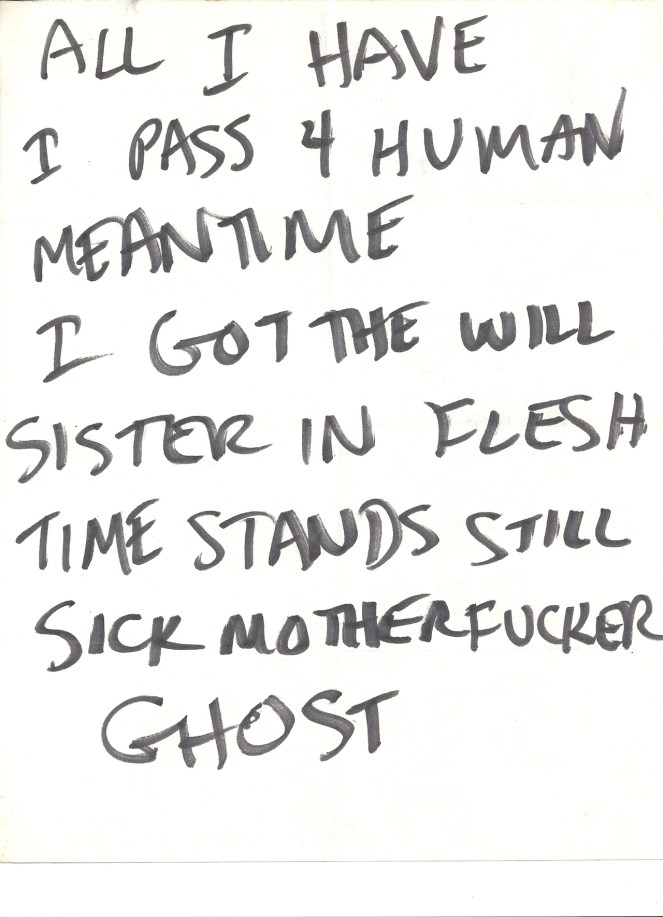 ALL I HAVE
I PASS 4 HUMAN
MEANTIME
I GOT THE WILL
SISTER IN FLESH
TIME STANDS STILL
SICK MOTHERFUCKER
GHOST